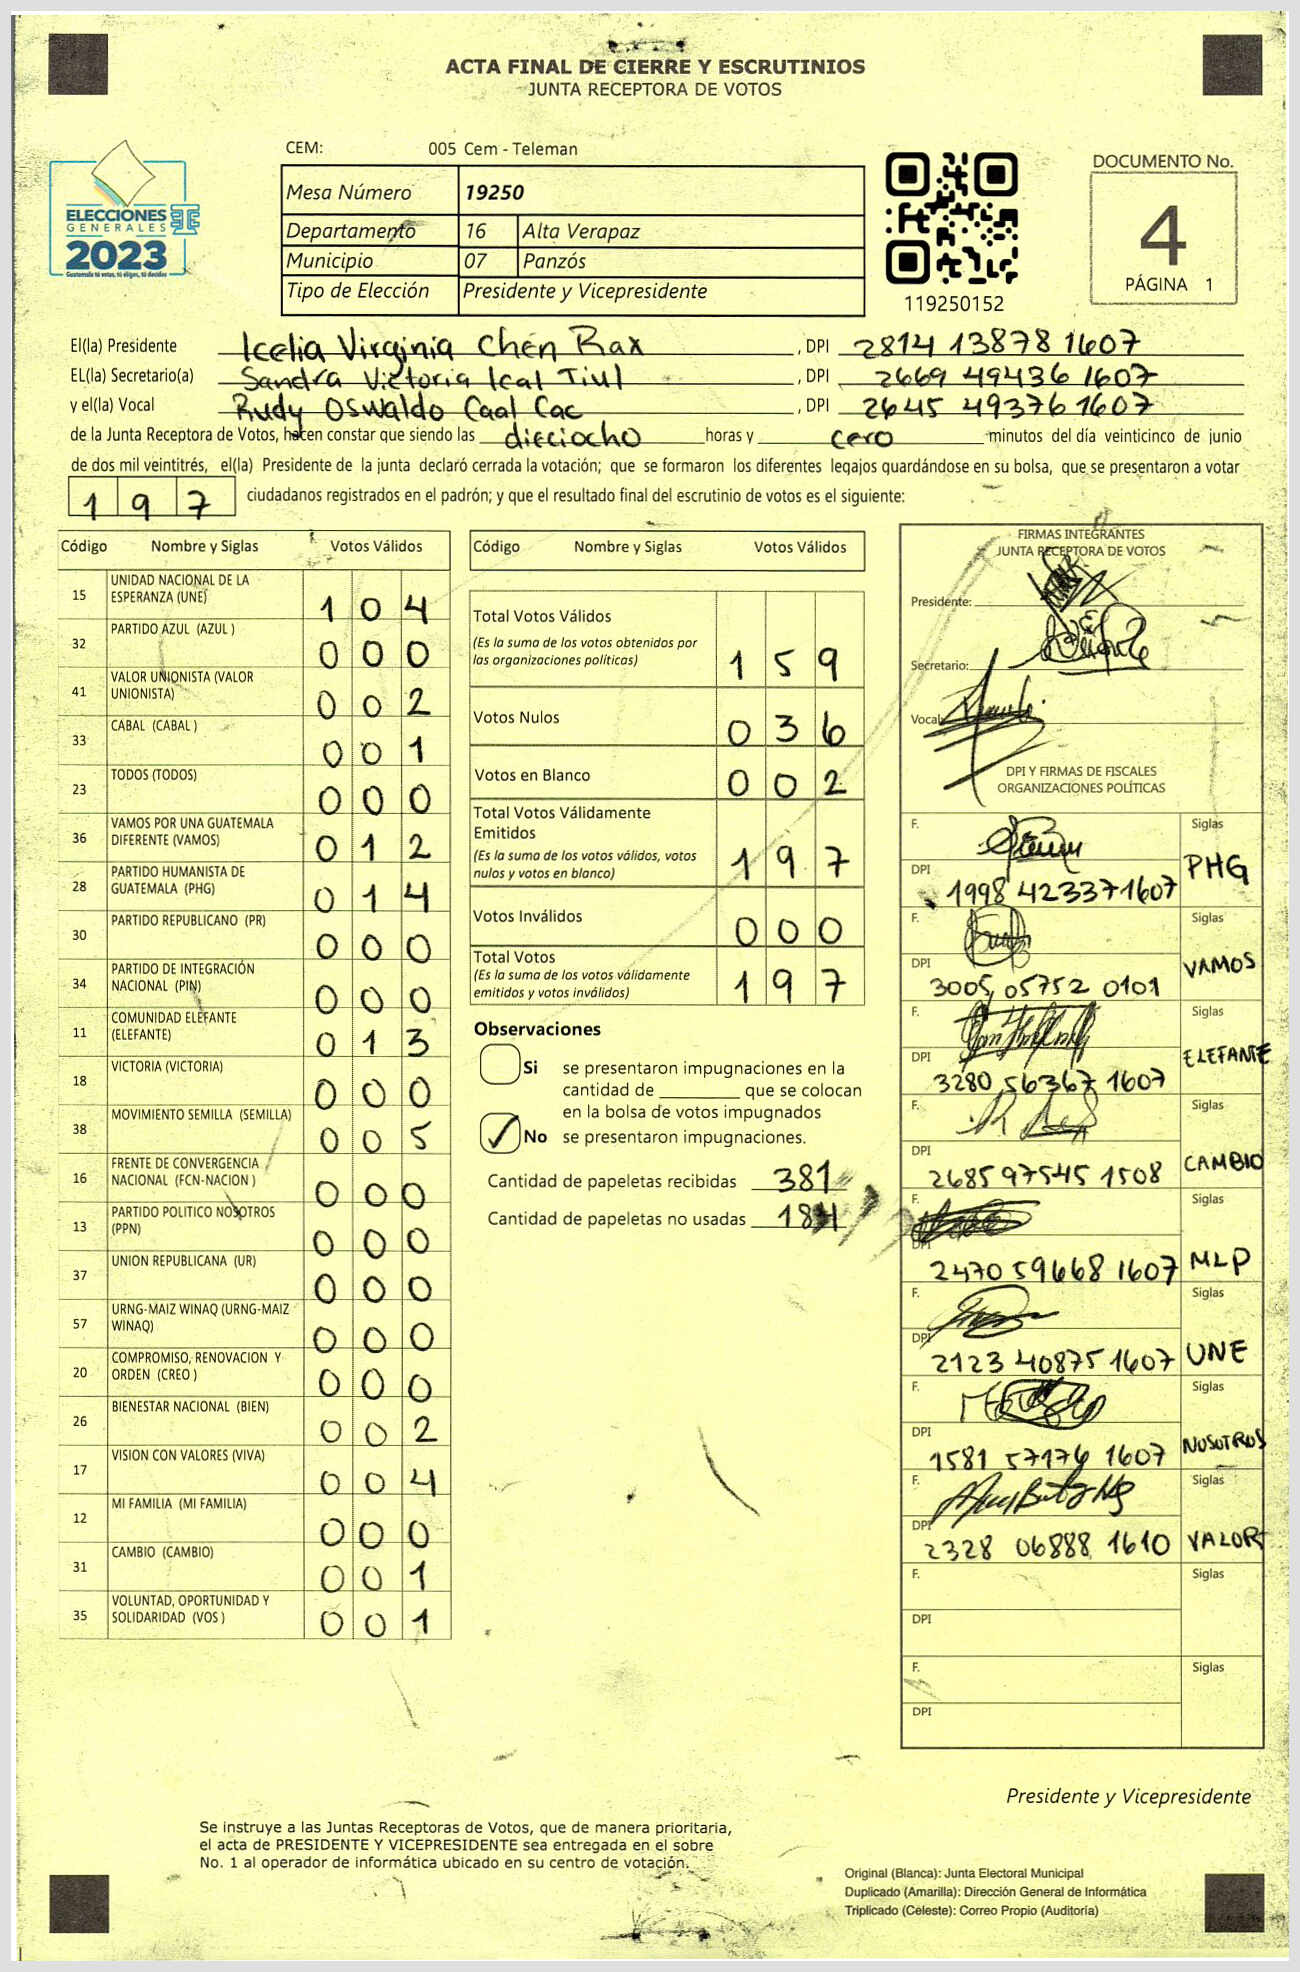 ACTA FINAL DE CIERRE Y ESCRUTINIOS
JUNTA RECEPTORA DE VOTOS
CEM: 005 Cem - Teleman
ELECCIONES
GENERALES
2023
Guatemala tú votas, tú eliges, tú decides
Mesa Número 19250
Departamento 16 Alta Verapaz
Municipio 07 Panzós
Tipo de Elección Presidente y Vicepresidente
119250152
DOCUMENTO No.
4
PÁGINA 1
El(la) Presidente Icelia Virginia Chén Rax , DPI 2814 13878 1607
EL(la) Secretario(a) Sandra Victoria Ical Tiul , DPI 2669 49436 1607
y el(la) Vocal Rudy Oswaldo Caal Cac , DPI 2645 49376 1607
de la Junta Receptora de Votos, hacen constar que siendo las dieciocho horas y cero minutos del día veinticinco de junio
de dos mil veintitrés, el(la) Presidente de la junta declaró cerrada la votación; que se formaron los diferentes legajos guardándose en su bolsa, que se presentaron a votar
197 ciudadanos registrados en el padrón; y que el resultado final del escrutinio de votos es el siguiente:
Código Nombre y Siglas Votos Válidos
15 UNIDAD NACIONAL DE LA ESPERANZA (UNE) 104
32 PARTIDO AZUL (AZUL ) 000
41 VALOR UNIONISTA (VALOR UNIONISTA) 002
33 CABAL (CABAL ) 001
23 TODOS (TODOS) 000
36 VAMOS POR UNA GUATEMALA DIFERENTE (VAMOS) 012
28 PARTIDO HUMANISTA DE GUATEMALA (PHG) 014
30 PARTIDO REPUBLICANO (PR) 000
34 PARTIDO DE INTEGRACIÓN NACIONAL (PIN) 000
11 COMUNIDAD ELEFANTE (ELEFANTE) 013
18 VICTORIA (VICTORIA) 000
38 MOVIMIENTO SEMILLA (SEMILLA) 005
16 FRENTE DE CONVERGENCIA NACIONAL (FCN-NACION ) 000
13 PARTIDO POLITICO NOSOTROS (PPN) 000
37 UNION REPUBLICANA (UR) 000
57 URNG-MAIZ WINAQ (URNG-MAIZ WINAQ) 000
20 COMPROMISO, RENOVACION Y ORDEN (CREO ) 000
26 BIENESTAR NACIONAL (BIEN) 002
17 VISION CON VALORES (VIVA) 004
12 MI FAMILIA (MI FAMILIA) 000
31 CAMBIO (CAMBIO) 001
35 VOLUNTAD, OPORTUNIDAD Y SOLIDARIDAD (VOS ) 001
Código Nombre y Siglas Votos Válidos
Total Votos Válidos
(Es la suma de los votos obtenidos por
las organizaciones políticas) 159
Votos Nulos 036
Votos en Blanco 002
Total Votos Válidamente
Emitidos
(Es la suma de los votos válidos, votos
nulos y votos en blanco) 197
Votos Inválidos 000
Total Votos
(Es la suma de los votos válidamente
emitidos y votos inválidos) 197
Observaciones
Si se presentaron impugnaciones en la
cantidad de ________ que se colocan
en la bolsa de votos impugnados
No se presentaron impugnaciones.
Cantidad de papeletas recibidas 381
Cantidad de papeletas no usadas 184
FIRMAS INTEGRANTES
JUNTA RECEPTORA DE VOTOS
Presidente:
Secretario:
Vocal:
DPI Y FIRMAS DE FISCALES
ORGANIZACIONES POLÍTICAS
F. Siglas
DPI 1998 42337 1607 PHG
F. Siglas
DPI 3005 05752 0101 VAMOS
F. Siglas
DPI 3280 56367 1607 ELEFANTE
F. Siglas
DPI 2685 97545 1508 CAMBIO
F. Siglas
DPI 2470 59668 1607 MLP
F. Siglas
DPI 2123 40875 1607 UNE
F. Siglas
DPI 1581 57176 1607 NOSOTROS
F. Siglas
DPI 2328 06888 1610 VALOR
F. Siglas
DPI
F. Siglas
DPI
Presidente y Vicepresidente
Se instruye a las Juntas Receptoras de Votos, que de manera prioritaria,
el acta de PRESIDENTE Y VICEPRESIDENTE sea entregada en el sobre
No. 1 al operador de informática ubicado en su centro de votación.
Original (Blanca): Junta Electoral Municipal
Duplicado (Amarilla): Dirección General de Informática
Triplicado (Celeste): Correo Propio (Auditoría)